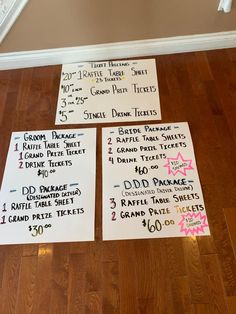 Ticket Pricing
$20 1 Raffle Table Sheet
*25 Tickets
$10 ea Grand Prize Tickets
or
3 for $25
$5 Single Drink Tickets
Groom Package
1 Raffle Table Sheet
1 Grand Prize Ticket
2 Drink Tickets
$40.00
Bride Package
2 Raffle Table Sheets
2 Grand Prize Tickets
4 Drink Tickets
$60.00
$20 Savings
DD Package
(Designated Driver)
1 Raffle Table Sheet
1 Grand Prize Tickets
$30.00
D.D.D. Package
(Designated Driver Deluxe)
3 Raffle Table Sheets
2 Grand Prize Tickets
$60.00